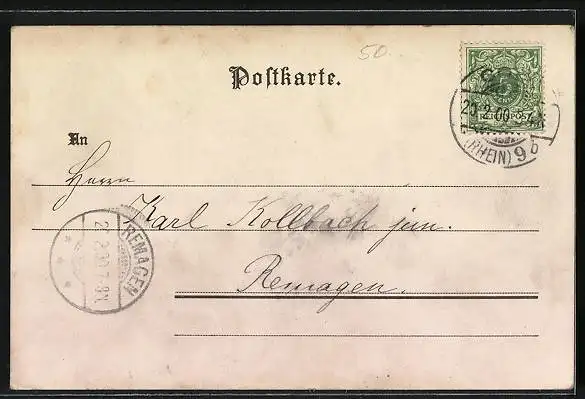 50.
Postkarte.
5
REICHSPOST
(RHEIN) 9 b
An
Herrn
Karl Kollbach jun.
Remagen.
REMAGEN